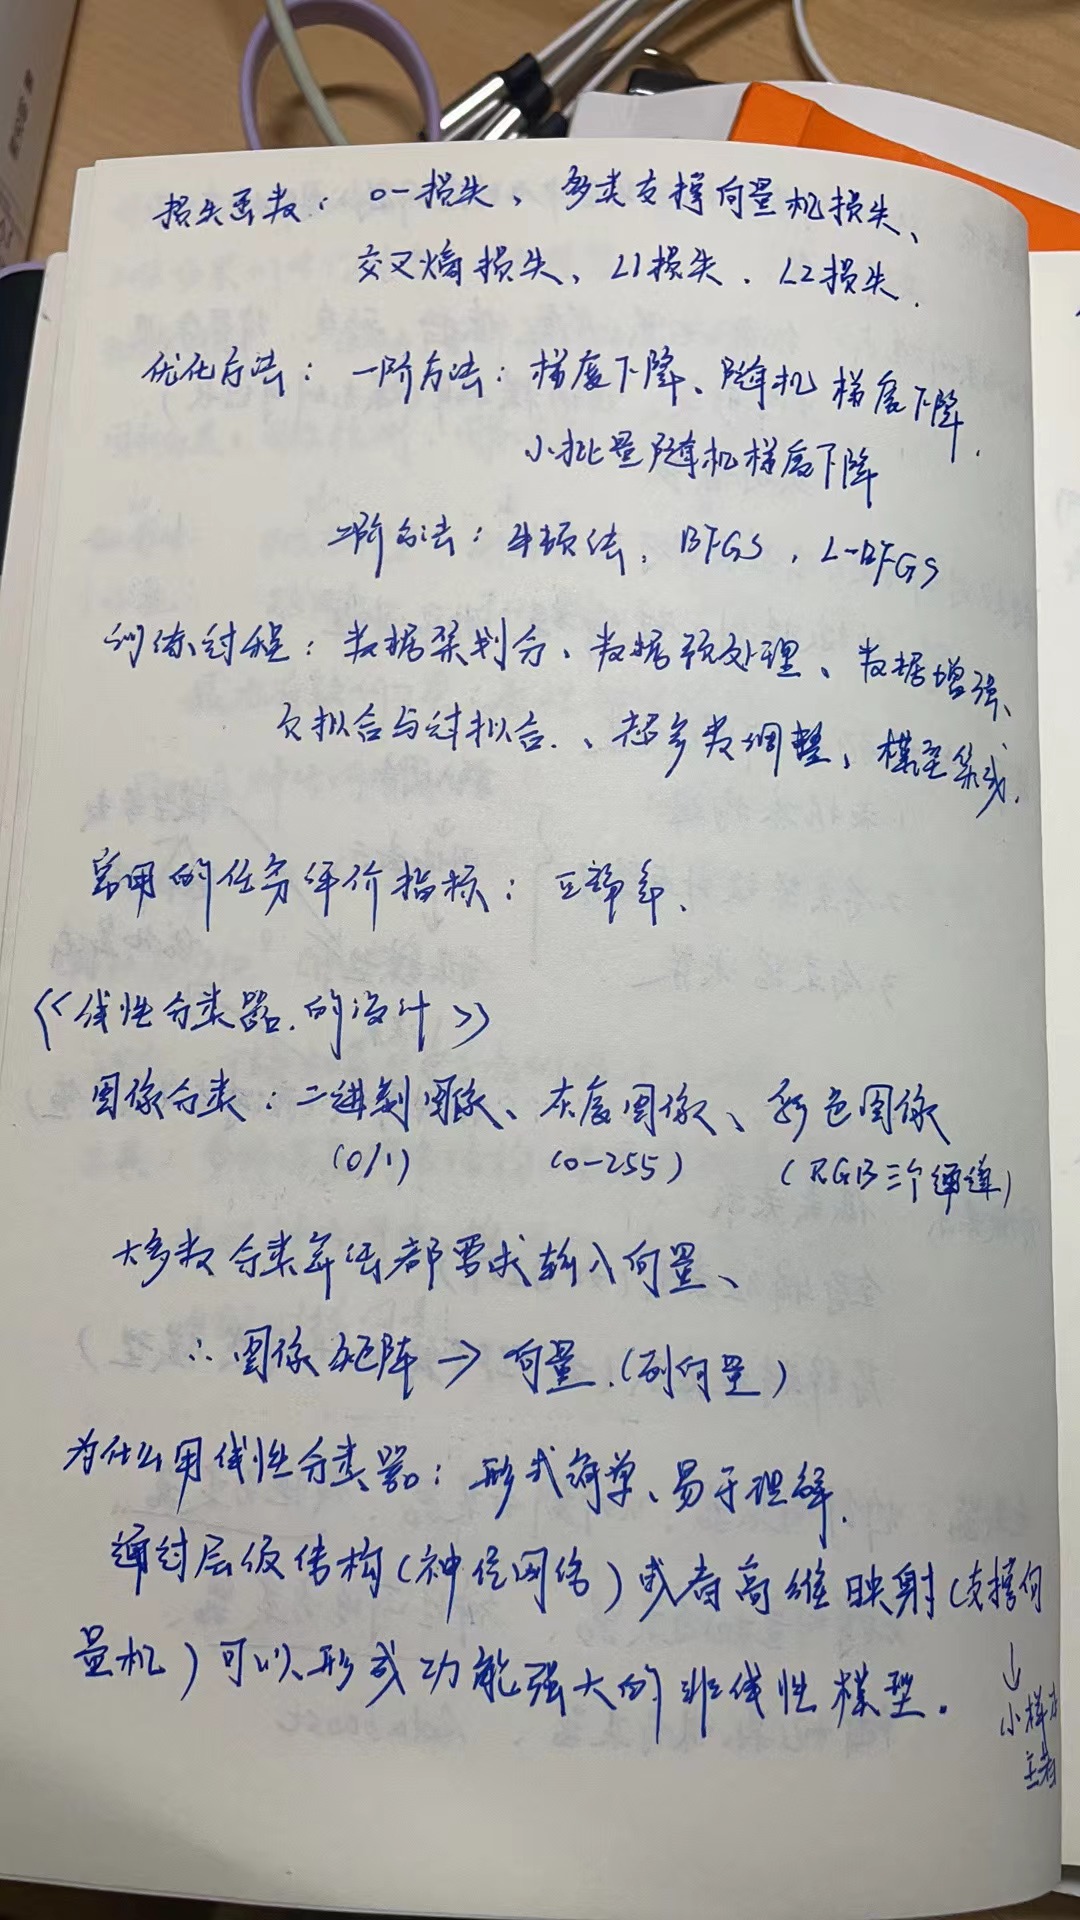 损失函数：0-1损失、多类支撑向量机损失、
交叉熵损失、L1损失、L2损失.
优化方法：一阶方法：梯度下降、随机梯度下降、
小批量随机梯度下降
二阶方法：牛顿法，BFGS，L-BFGS
训练过程：数据集划分、数据预处理、数据增强、
欠拟合与过拟合、超参数调整，模型集成.
常用的任务评价指标：正确率、
《线性分类器的设计》
图像分类：二进制图像、灰度图像、彩色图像
(0/1) (0-255) (RGB三个通道)
大多数分类算法都要求输入向量、
∴图像矩阵→向量.(列向量)
为什么用线性分类器：形式简单、易于理解.
通过层级结构(神经网络)或者高维映射(支撑向
量机)可以形成功能强大的非线性模型.
↓
小样本